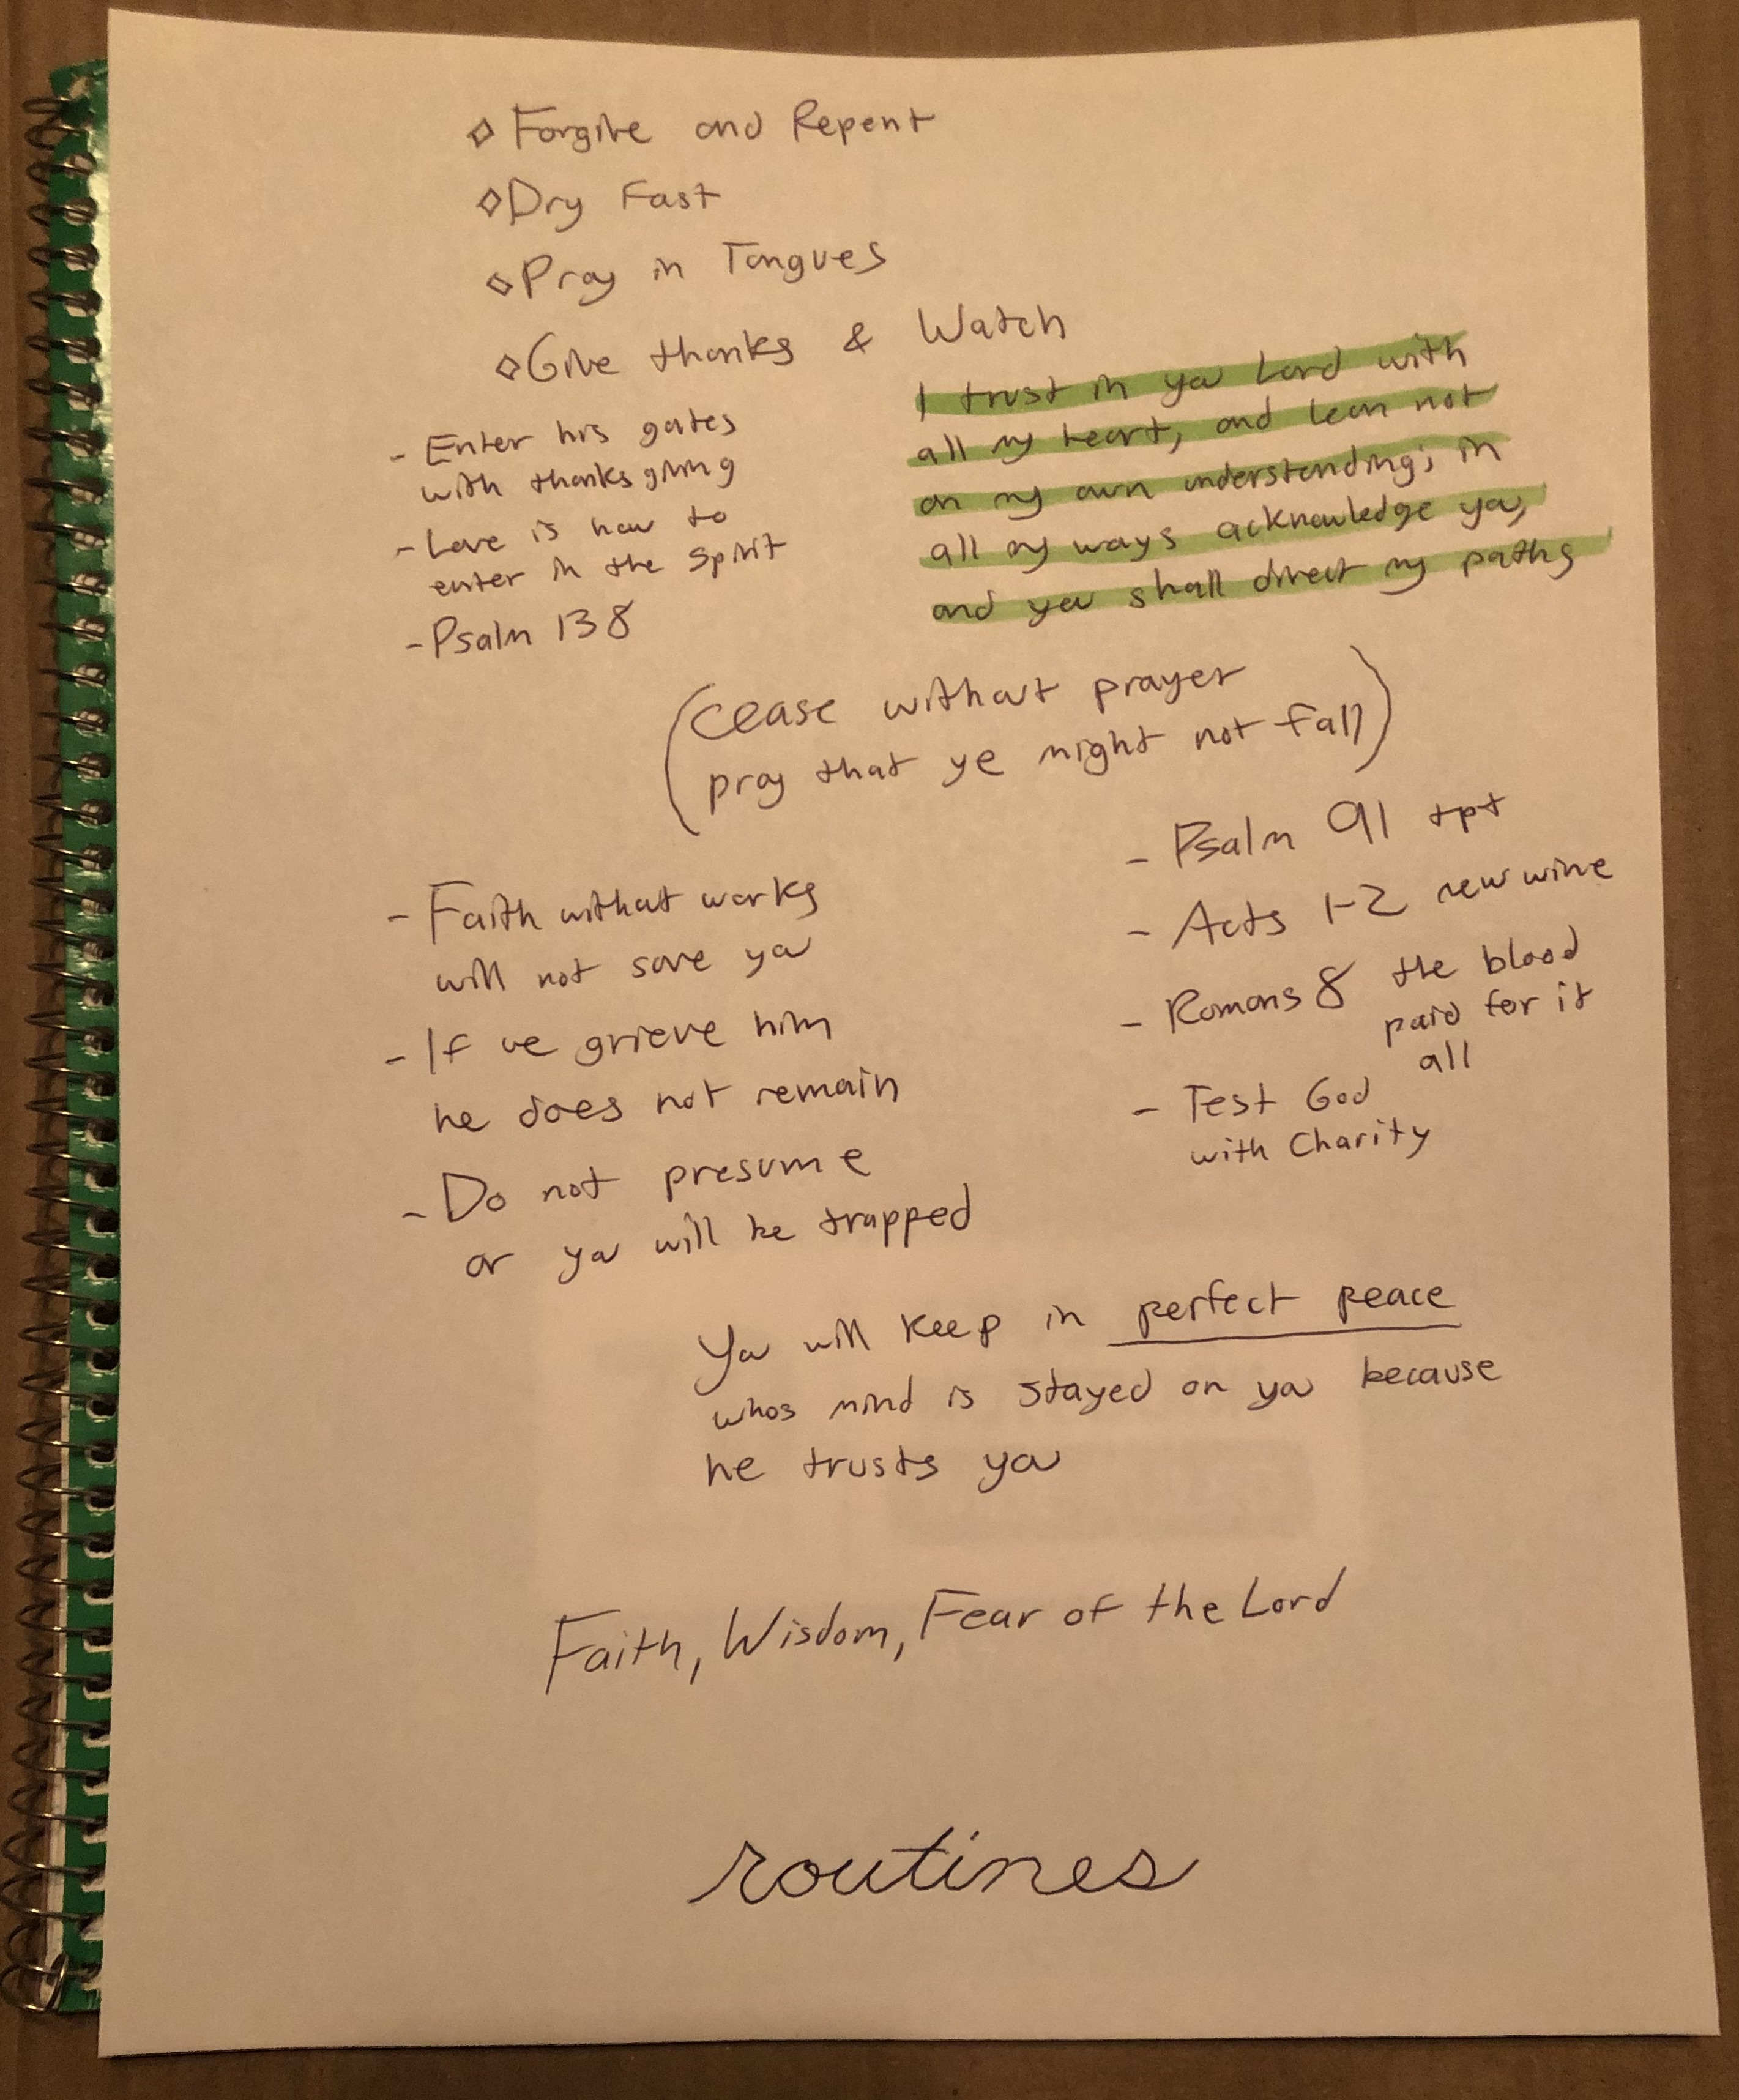 ◇ Forgive and Repent
◇ Dry Fast
◇ Pray in Tongues
◇ Give thanks & Watch
- Enter his gates
with thanksgiving
- Love is how to
enter in the Spirit
- Psalm 138
I trust in you Lord with
all my heart, and lean not
on my own understanding; in
all my ways acknowledge you,
and you shall direct my paths
(cease without prayer
pray that ye might not fall)
- Faith without works
will not save you
- If we grieve him
he does not remain
- Do not presume
or you will be trapped
- Psalm 91 tpt
- Acts 1-2 new wine
- Romans 8 the blood
paid for it
all
- Test God
with Charity
You will keep in perfect peace
whos mind is stayed on you because
he trusts you
Faith, Wisdom, Fear of the Lord
routines